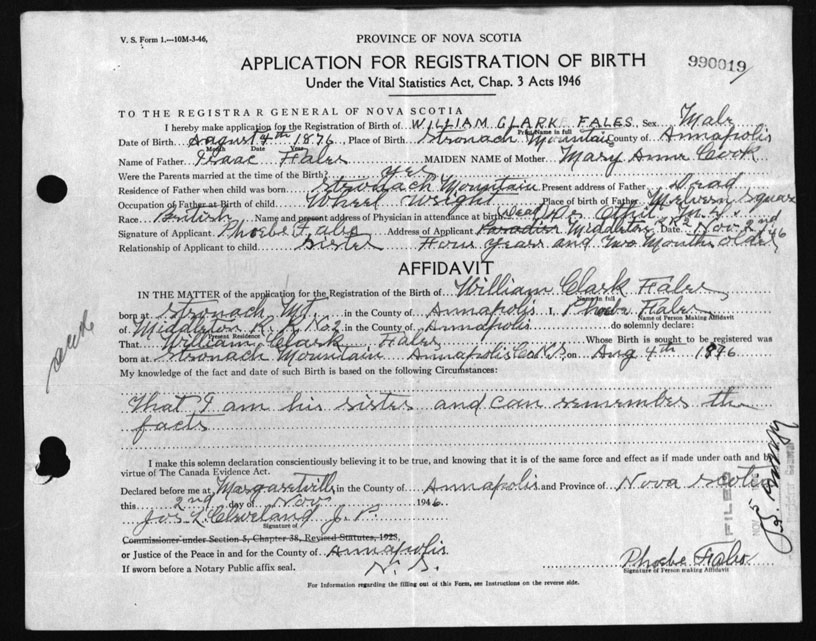 V. S. Form 1.—10M-3-46,
PROVINCE OF NOVA SCOTIA
APPLICATION FOR REGISTRATION OF BIRTH
990019
Under the Vital Statistics Act, Chap. 3 Acts 1946
TO THE REGISTRAR GENERAL OF NOVA SCOTIA
I hereby make application for the Registration of Birth of WILLIAM CLARK FALES, Sex Male
Print Name in full
Date of Birth August 4th 1876, Place of Birth Stronach Mountain County of Annapolis
Month Date Year
Name of Father Isaac Fales MAIDEN NAME of Mother Mary Anne Cook
Were the Parents married at the time of the Birth? Yes
Residence of Father when child was born Stronach Mountain Present address of Father Dead
Occupation of Father at Birth of child Wheel Wright Place of birth of Father Melvern Square
Race British Name and present address of Physician in attendance at birth Dead
Signature of Applicant Phoebe Fales Address of Applicant Paradise Middleton Date Nov. 2nd 46
Relationship of Applicant to child Sister Four years and two Months older
AFFIDAVIT
IN THE MATTER of the application for the Registration of the Birth of William Clark Fales
Name in full
born at Stronach Mt. in the County of Annapolis I, Phoebe Fales
Name of Person Making Affidavit
of Middleton R. R. No 2 in the County of Annapolis do solemnly declare:
Present Residence
That William Clark Fales Whose Birth is sought to be registered was
born at Stronach Mountain Annapolis Co. N.S. on Aug 4th 1876
My knowledge of the fact and date of such Birth is based on the following Circumstances:
That I am his sister and can remember the
facts
I make this solemn declaration conscientiously believing it to be true, and knowing that it is of the same force and effect as if made under oath and by
virtue of The Canada Evidence Act.
Declared before me at Margaretville in the County of Annapolis and Province of Nova Scotia
this 2nd day of Nov 1946
Jos L. Cleveland J. P.
Signature of
Commissioner under Section 5, Chapter 38, Revised Statutes, 1923,
or Justice of the Peace in and for the County of Annapolis
N. S.
If sworn before a Notary Public affix seal.
Phoebe Fales
Signature of Person making Affidavit
FILED
NOV 5
For Information regarding the filling out of this Form, see Instructions on the reverse side.